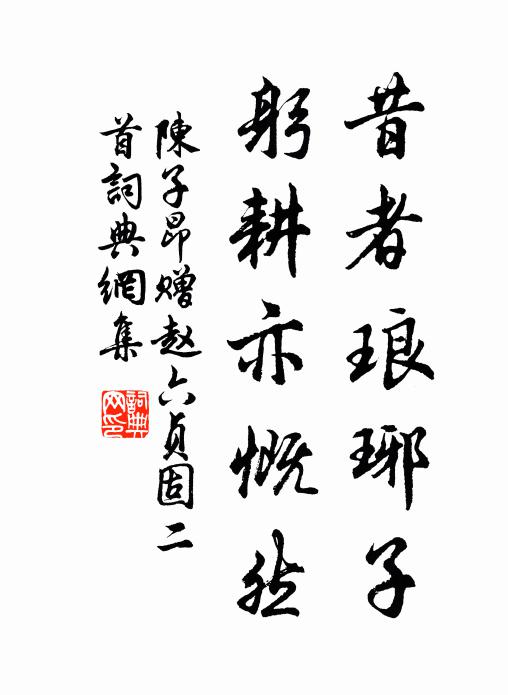 昔者琅琊子
躬耕亦慨然
陳子昂赠赵六貞固二
首詞典網集
詞典网印